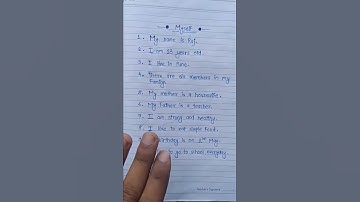 Myself
1. My name is Raj.
2. I am 13 years old.
3. I live in Pune.
4. There are six members in my
family.
5. My mother is a housewife.
6. My father is a teacher.
7. I am strong and healthy.
8. I like to eat simple food.
birthday is on 2nd May.
to go to school everyday.